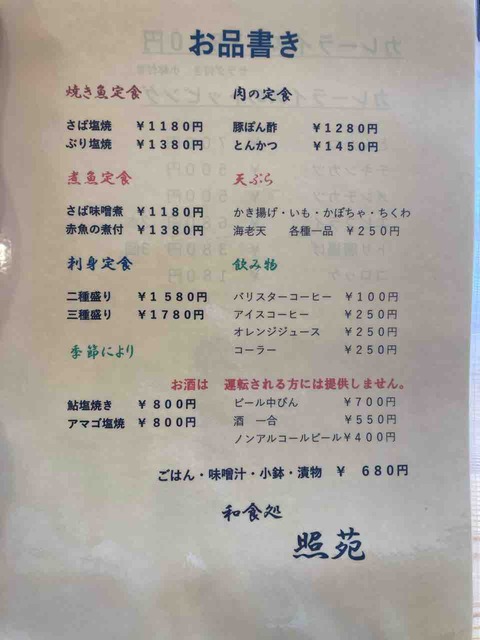 お品書き
焼き魚定食
さば塩焼 ¥1180円
ぶり塩焼 ¥1380円
煮魚定食
さば味噌煮 ¥1180円
赤魚の煮付 ¥1380円
刺身定食
二種盛り ¥1580円
三種盛り ¥1780円
季節により
鮎塩焼き ¥800円
アマゴ塩焼 ¥800円
肉の定食
豚ぽん酢 ¥1280円
とんかつ ¥1450円
天ぷら
かき揚げ・いも・かぼちゃ・ちくわ
海老天 各種一品 ¥250円
飲み物
バリスターコーヒー ¥100円
アイスコーヒー ¥250円
オレンジジュース ¥250円
コーラー ¥250円
お酒は 運転される方には提供しません。
ビール中びん ¥700円
酒 一合 ¥550円
ノンアルコールビール¥400円
ごはん・味噌汁・小鉢・漬物 ¥ 680円
和食処
照苑